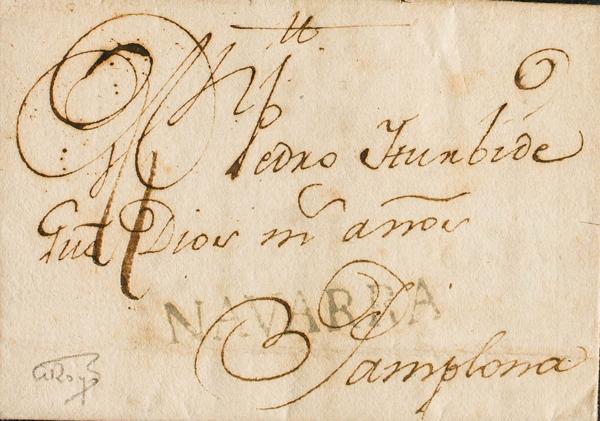 Pedro Iturbide
Gue Dios ms años
NAVARRA
Pamplona